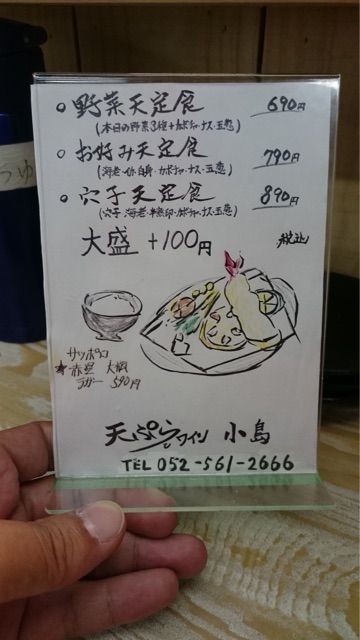 ○ 野菜天定食 690円
(本日の野菜3種+カボチャ・ナス・玉葱)
○ お好み天定食 790円
(海老・イカ・白身・カボチャ・ナス・玉葱)
○ 穴子天定食 890円
(穴子・海老・半熟卵・カボチャ・ナス・玉葱)
大盛 +100円 税込
サッポロ
★赤星 大瓶
ラガー 590円
天ぷらワイン 小島
TEL 052-561-2666
つゆ